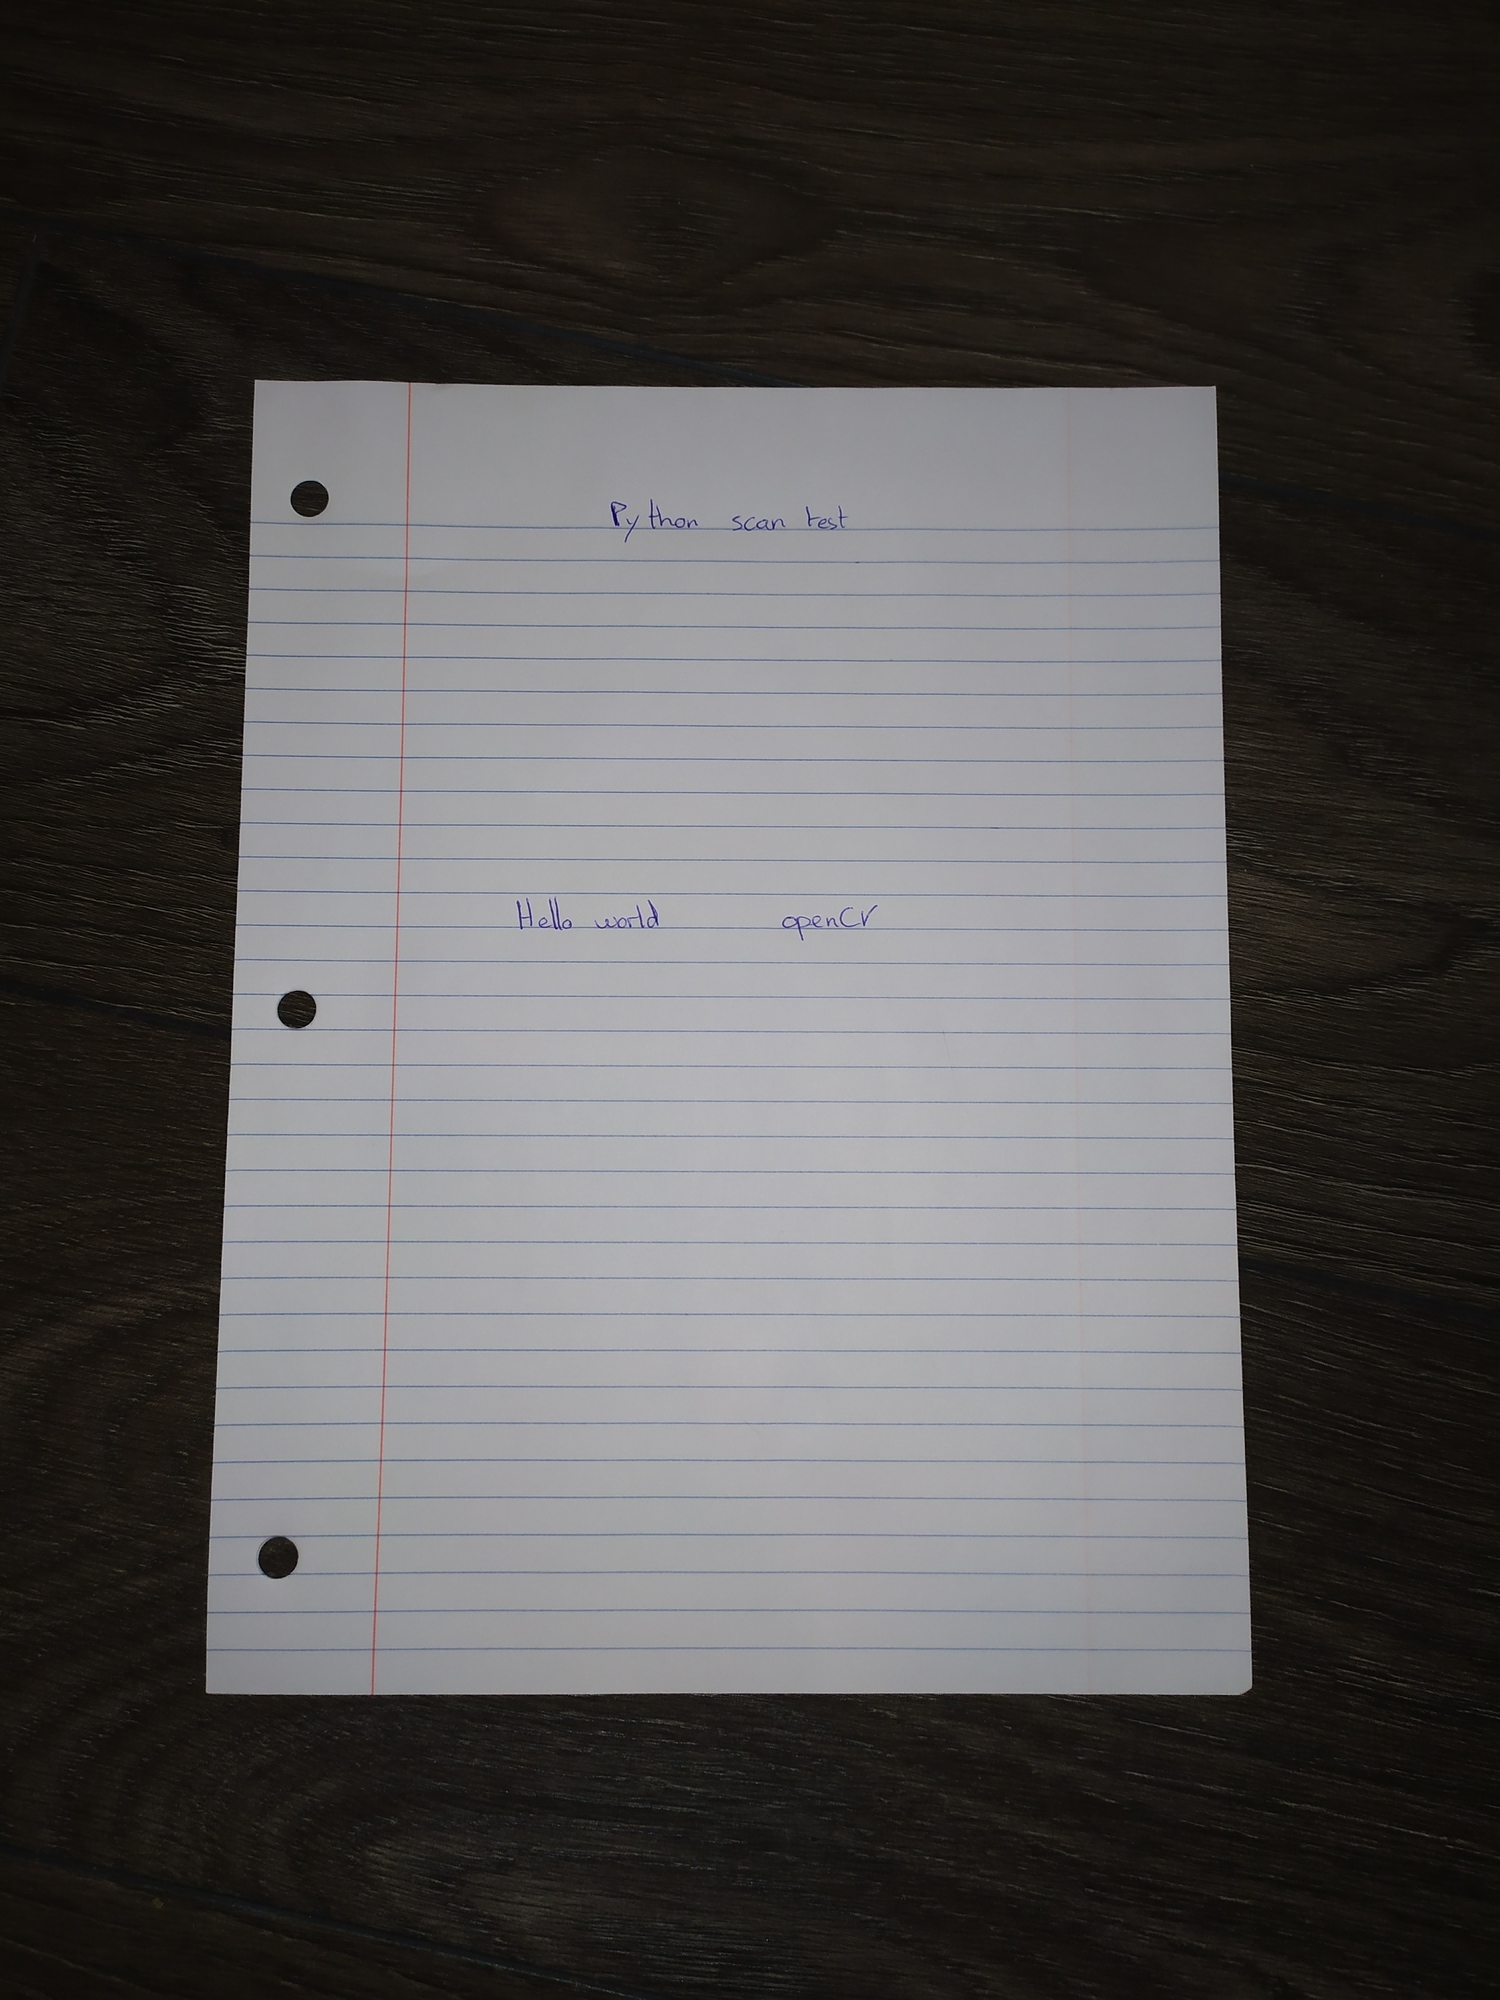 Python scan test
Hello world openCV